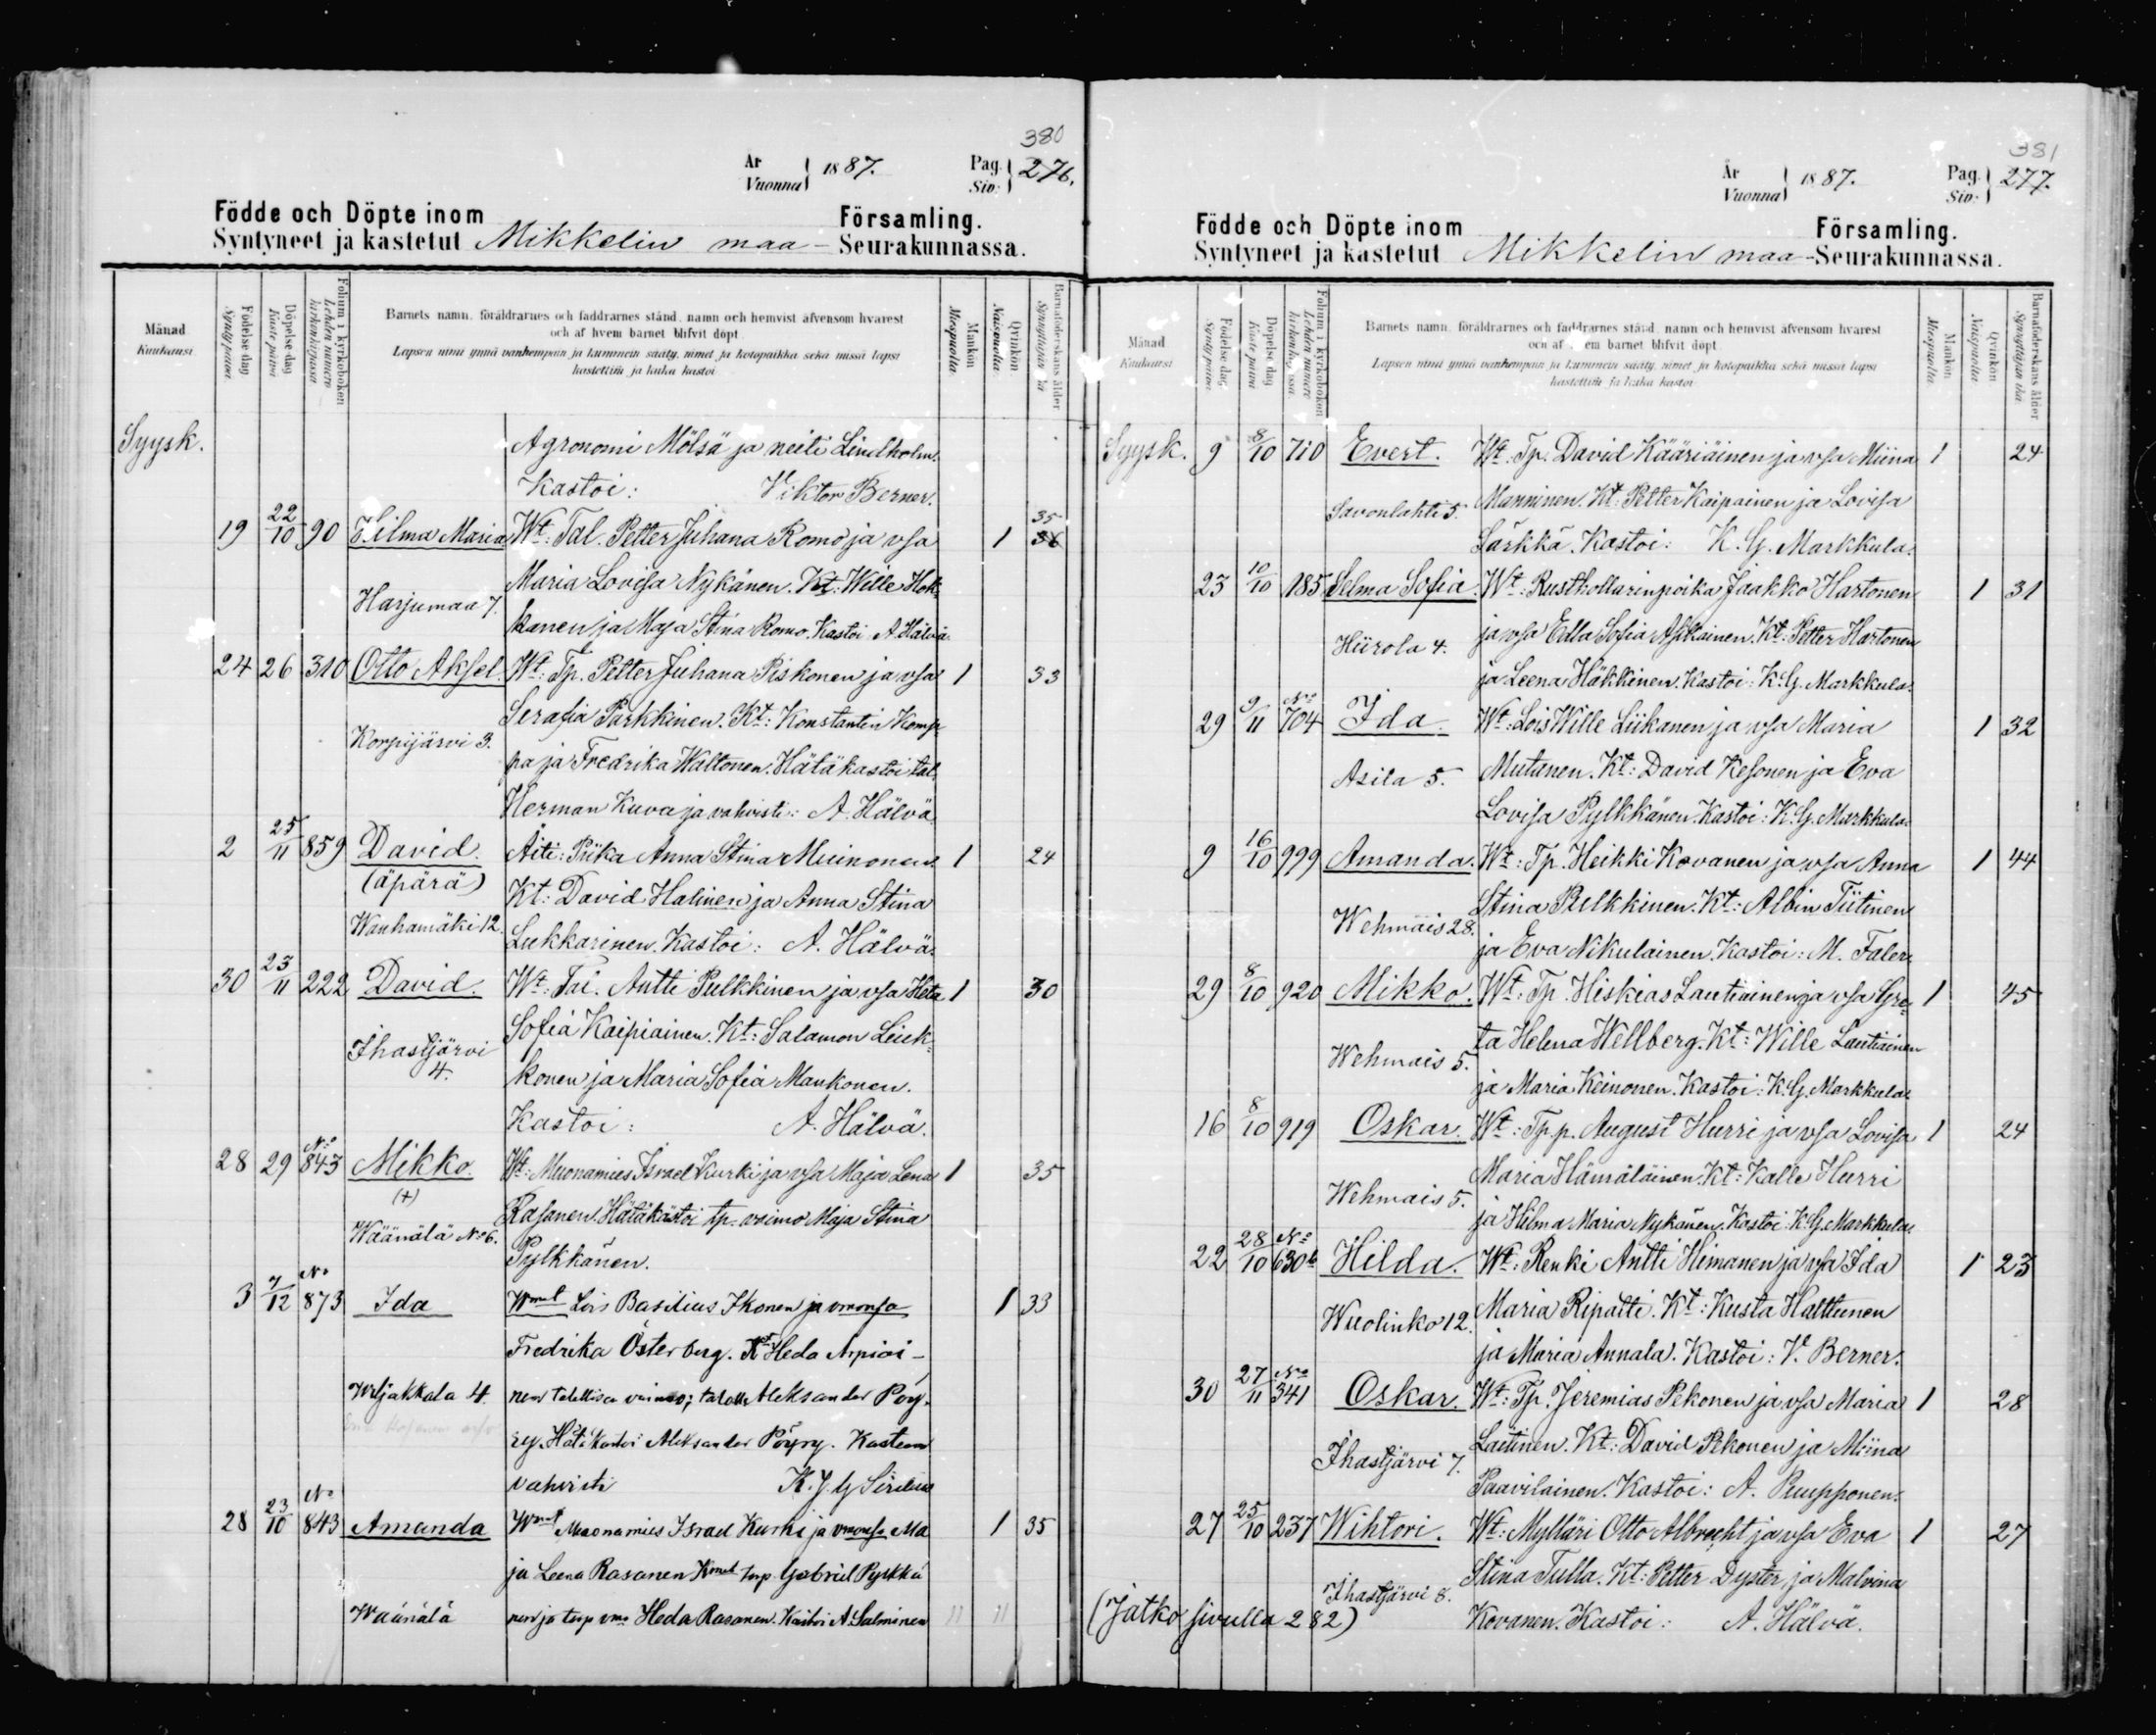 380
År Vuonna 1887. Pag. Siv: 276.
Födde och Döpte inom Församling.
Syntyneet ja kastetut Mikkelin maa- Seurakunnassa.
Månad
Kuukausi
Födelse dag
Synty päivä
Döpelse dag
Kaste päivä
Folium i kyrkoboken
Lehden numero kirkonkirjassa
Barnets namn, föräldrarnes och faddrarnes stånd, namn och hemvist äfvensom hvarest
och af hvem barnet blifvit döpt
Lapsen nimi ynnä vanhempain ja kummein sääty, nimet ja kotopaikka sekä missä lapsi
kastettiin ja kuka kastoi
Mankön
Miespuolia
Qvinkön
Naispuolia
Barnaföderskans ålder
Synnyttäjän ikä
Syysk.
Agronomi Mölsä ja neiti Lindholm.
Kastoi: Viktor Berner.
19 22/10 90 Hilma Maria Wt: Tal. Petter Juhana Romo ja vsa 1 35
Maria Lovisa Nykänen. Kt: Wille Hok-
Harjumaa 7.
kanen ja Maja Stina Romo. Kastoi A. Hälvä
24 26 310 Otto Aksel. Wt: Tp. Petter Juhana Piskonen ja vsa 1 33
Serafia Parkkinen. Kt: Konstantin Komp
Korpijärvi 3.
pa ja Fredrika Waltonen. Hätäkastoi tal.
Herman Kuva ja vahvisti: A. Hälvä.
2 25/11 859 David. Äiti: Piika Anna Stina Muinonen. 1 24
(äpärä) Kt: David Halinen ja Anna Stina
Wanhamäki 12. Lukkarinen. Kastoi: A. Hälvä.
30 23/11 222 David. Wt: Tal. Antti Pulkkinen ja vsa Heta 1 30
Sofia Kaipiainen. Kt: Salamon Leuk-
Ihastjärvi 4. konen ja Maria Sofia Maukonen.
Kastoi: A. Hälvä.
28 29 No 843 Mikko. Wt: Muonamies Israel Kurki ja vsa Maja Lena 1 35
(+) Rasanen. Hätäkastoi tp. vaimo Maja Stina
Wäänälä No 6. Pylkkänen.
3 7/12 No 873 Ida Wmt Lois Basilius Ikonen ja vmonsa 1 33
Fredrika Österberg. Kt Heda Arpiai-
Wiljakkala 4. nen talollisen vaimo; talolls Aleksander Pöy-
ry. Hätäkastoi Aleksander Pöyry. Kasteen
vahvisti K. J. G Sirelius
28 23/10 No 843 Amanda Wmt Muonamies Israel Kurki ja vmonsa Ma 1 35
ja Leena Rasanen Kmt torp Gabriel Pylkkä
Wäänälä nen ja torp vmo Heda Rasanen. Kastoi A. Salminen
381
År Vuonna 1887. Pag. Siv: 277.
Födde och Döpte inom Församling.
Syntyneet ja kastetut Mikkelin maa- Seurakunnassa.
Månad
Kuukausi
Födelse dag
Synty päivä
Döpelse dag
Kaste päivä
Folium i kyrkoboken
Lehden numero
Barnets namn, föräldrarnes och faddrarnes stånd, namn och hemvist äfvensom hvarest
och af em barnet blifvit döpt
Lapsen nimi ynnä vanhempain ja kummein sääty, nimet ja kotopaikka sekä missä lapsi
kastettiin ja kuka kastoi
Mankön
Miespuolia
Qvinkön
Naispuolia
Barnaföderskans ålder
Synnyttäjän ikä
Syysk. 9 8/10 710 Evert. Wt. Tp. David Kääriäinen ja vsa Miina 1 24
Savonlahti 5. Manninen. Kt. Petter Kaipainen ja Lovisa
Särkkä. Kastoi: K. G. Markkula.
23 10/10 185 Selma Sofia. Wt: Rusthollarinpoika Jaakko Hartonen 1 31
Hiirola 4. ja vsa Edla Sofia Asikainen. Kt: Petter Hartonen
ja Leena Häkkinen. Kastoi: K. G. Markkula.
29 9/11 No 704 Ida. Wt: Lois Wille Liikanen ja vsa Maria 1 32
Asila 5. Mutanen. Kt: David Kesonen ja Eva
Lovisa Pylkkänen. Kastoi: K. G. Markkula.
9 16/10 999 Amanda. Wt: Tp. Heikki Kovanen ja vsa Anna 1 44
Wehmais 28. Stina Pulkkinen. Kt: Albin Tiitinen
ja Eva Nikulainen. Kastoi: M. Faler.
29 8/10 920 Mikko. Wt: Tp. Hiskias Lautiainen ja vsa Gre- 1 45
Wehmais 5. ta Helena Wellberg. Kt: Wille Lautiainen
ja Maria Keinonen. Kastoi: K. G. Markkula.
16 8/10 919 Oskar. Wt: Tp.p. August Hurri ja vsa Lovisa 1 24
Wehmais 5. Maria Hämäläinen. Kt: Kalle Hurri
ja Hilma Maria Nykänen. Kastoi: K. G. Markkula.
22 28/10 No 630b Hilda. Wt: Renki Antti Himanen ja vsa Ida 1 23
Wuolinko 12. Maria Ripatti. Kt: Kusta Halttunen
ja Maria Annala. Kastoi: V. Berner.
30 27/11 No 341 Oskar. Wt: Tp. Jeremias Pekonen ja vsa Maria 1 28
Ihastjärvi 7. Laitinen. Kt: David Pekonen ja Miina
Paavilainen. Kastoi: A. Puupponen.
27 25/10 237 Wihtori. Wt: Mylläri Otto Albrecht ja vsa Eva 1 27
Ihastjärvi 8. Stina Tulla. Kt: Petter Dyster ja Malvina
(Jatko sivulla 282) Kovanen. Kastoi: A. Hälvä.